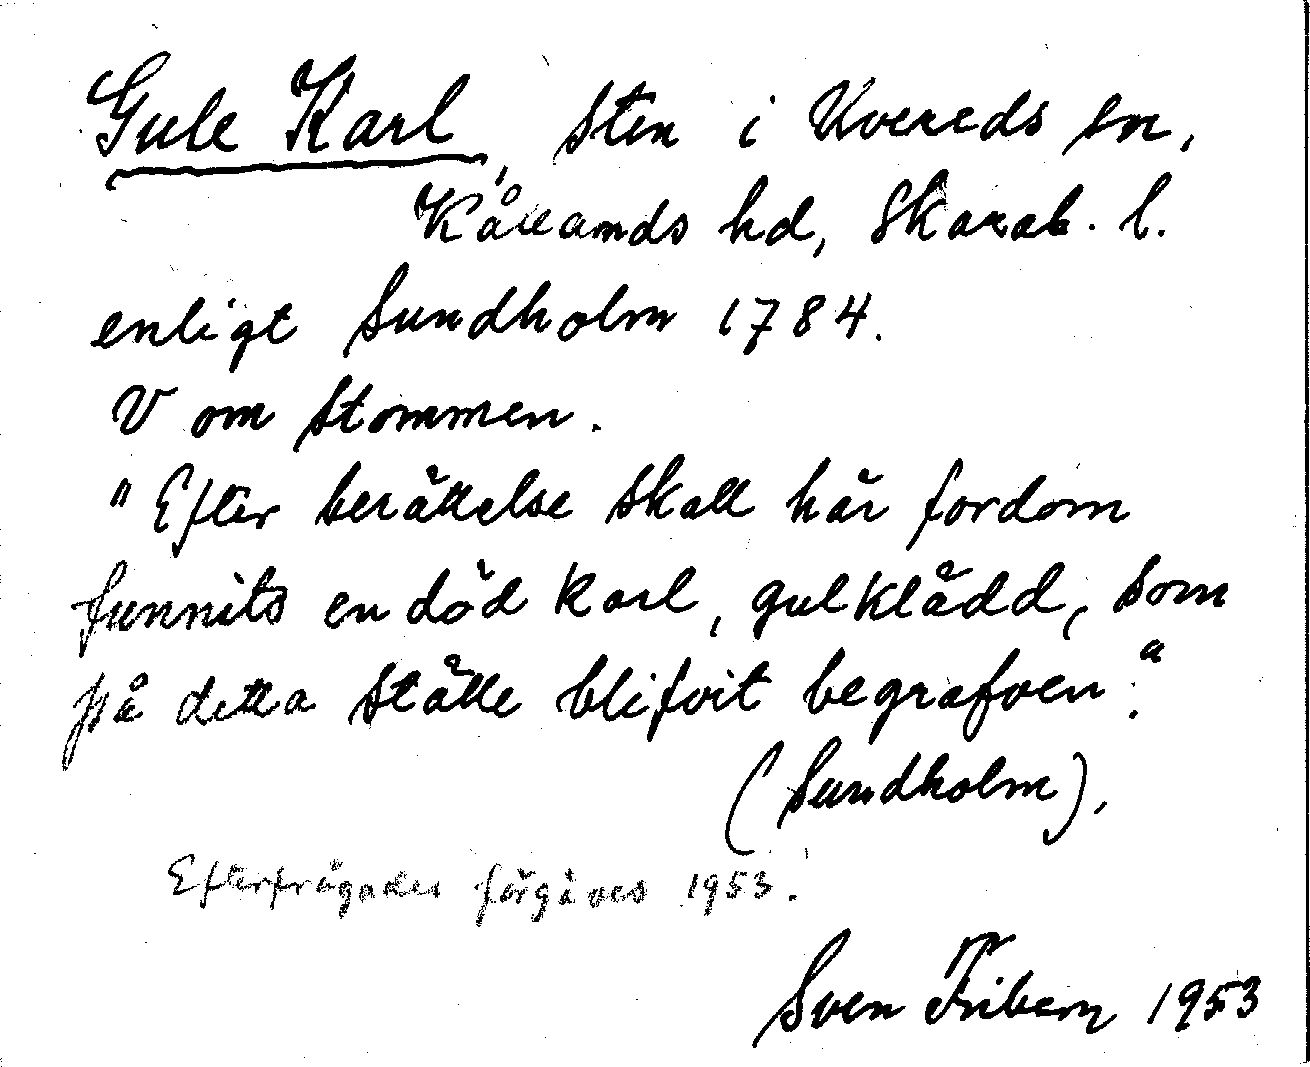 Gule Karl, sten i Kvereds sn,
Kållands hd, Skarab. l.
enligt Sundholm 1784.
V om Stommen.
"Efter berättelse skall här fordom
funnits en död karl, gulklädd, som
på detta ställe blifvit begrafven."
(Sundholm).
Efterfrågades förgäves 1953.
Sven Friberg 1953